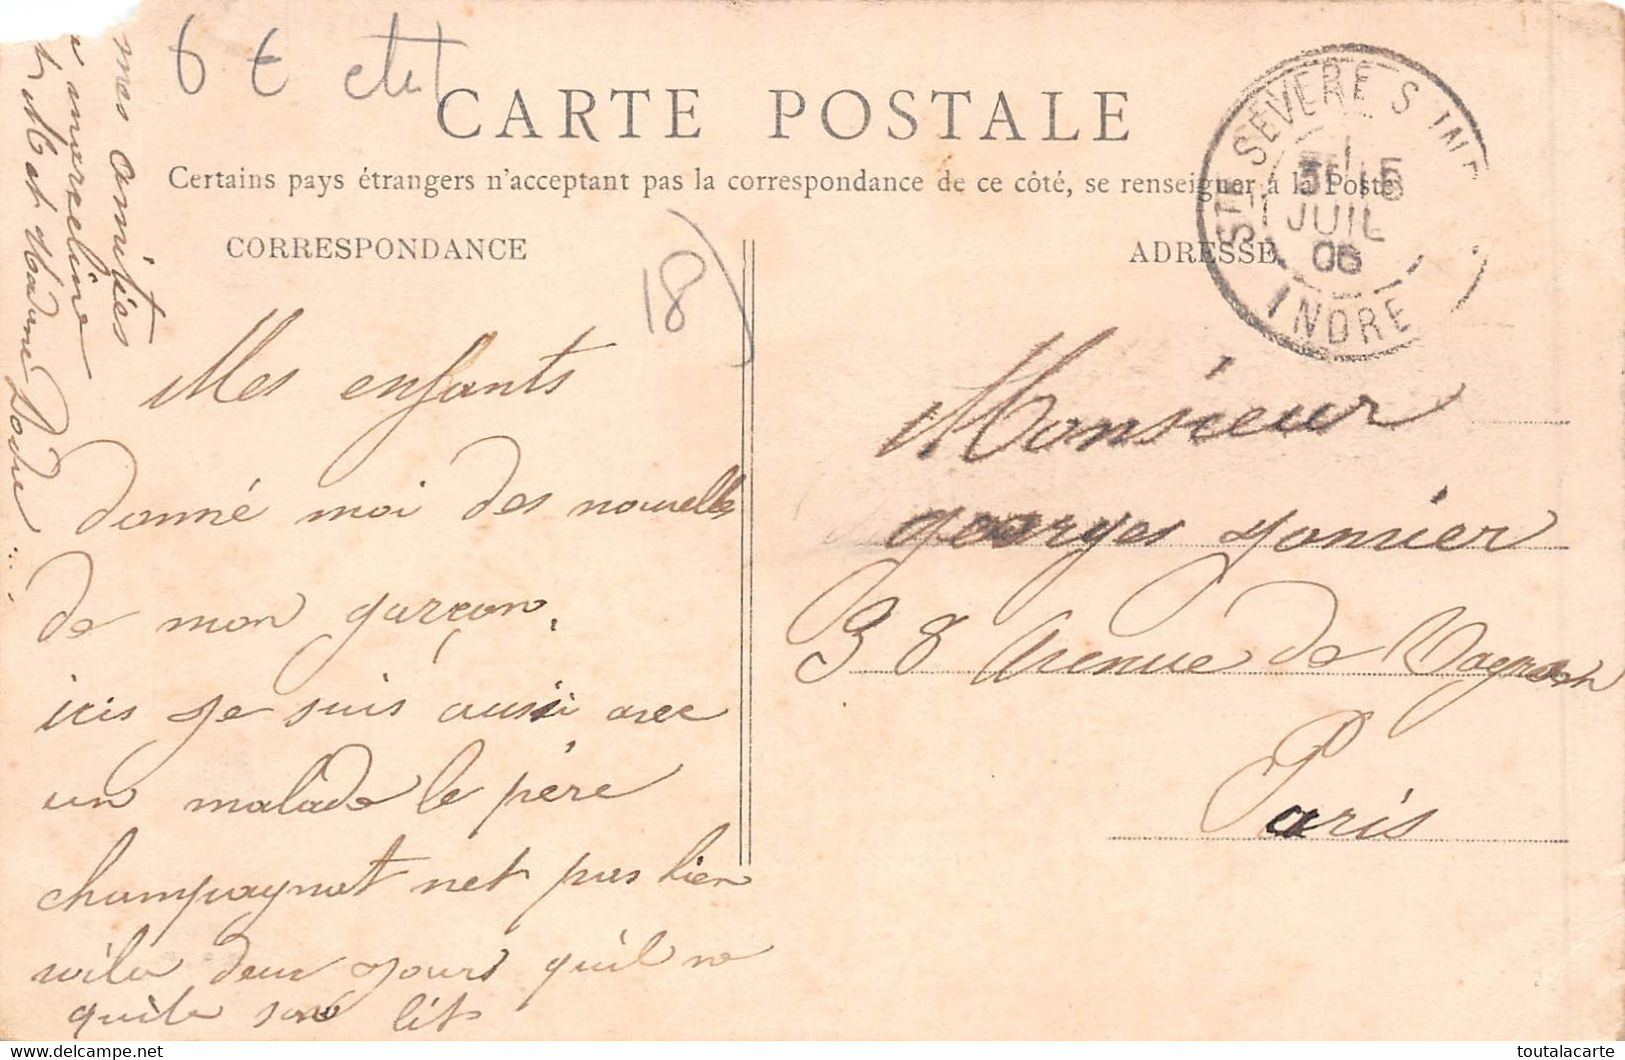 6 € etat
CARTE POSTALE
Certains pays étrangers n'acceptent pas la correspondance de ce côté, se renseigner à la Poste
CORRESPONDANCE
ADRESSE
18)
STE SÉVÈRE S
JUIL
06
INDRE
Mes enfants
donné moi des nouvelles
de mon garçon.
icis je suis aussi avec
un malade le père
champagnat net pas bien
voila deux jours quil ne
quite son lit
mes amities
a marceline
et M et Madame
Monsieur
georges
38 Avenue de Wagram
Paris
delcampe.net
toutalacarte